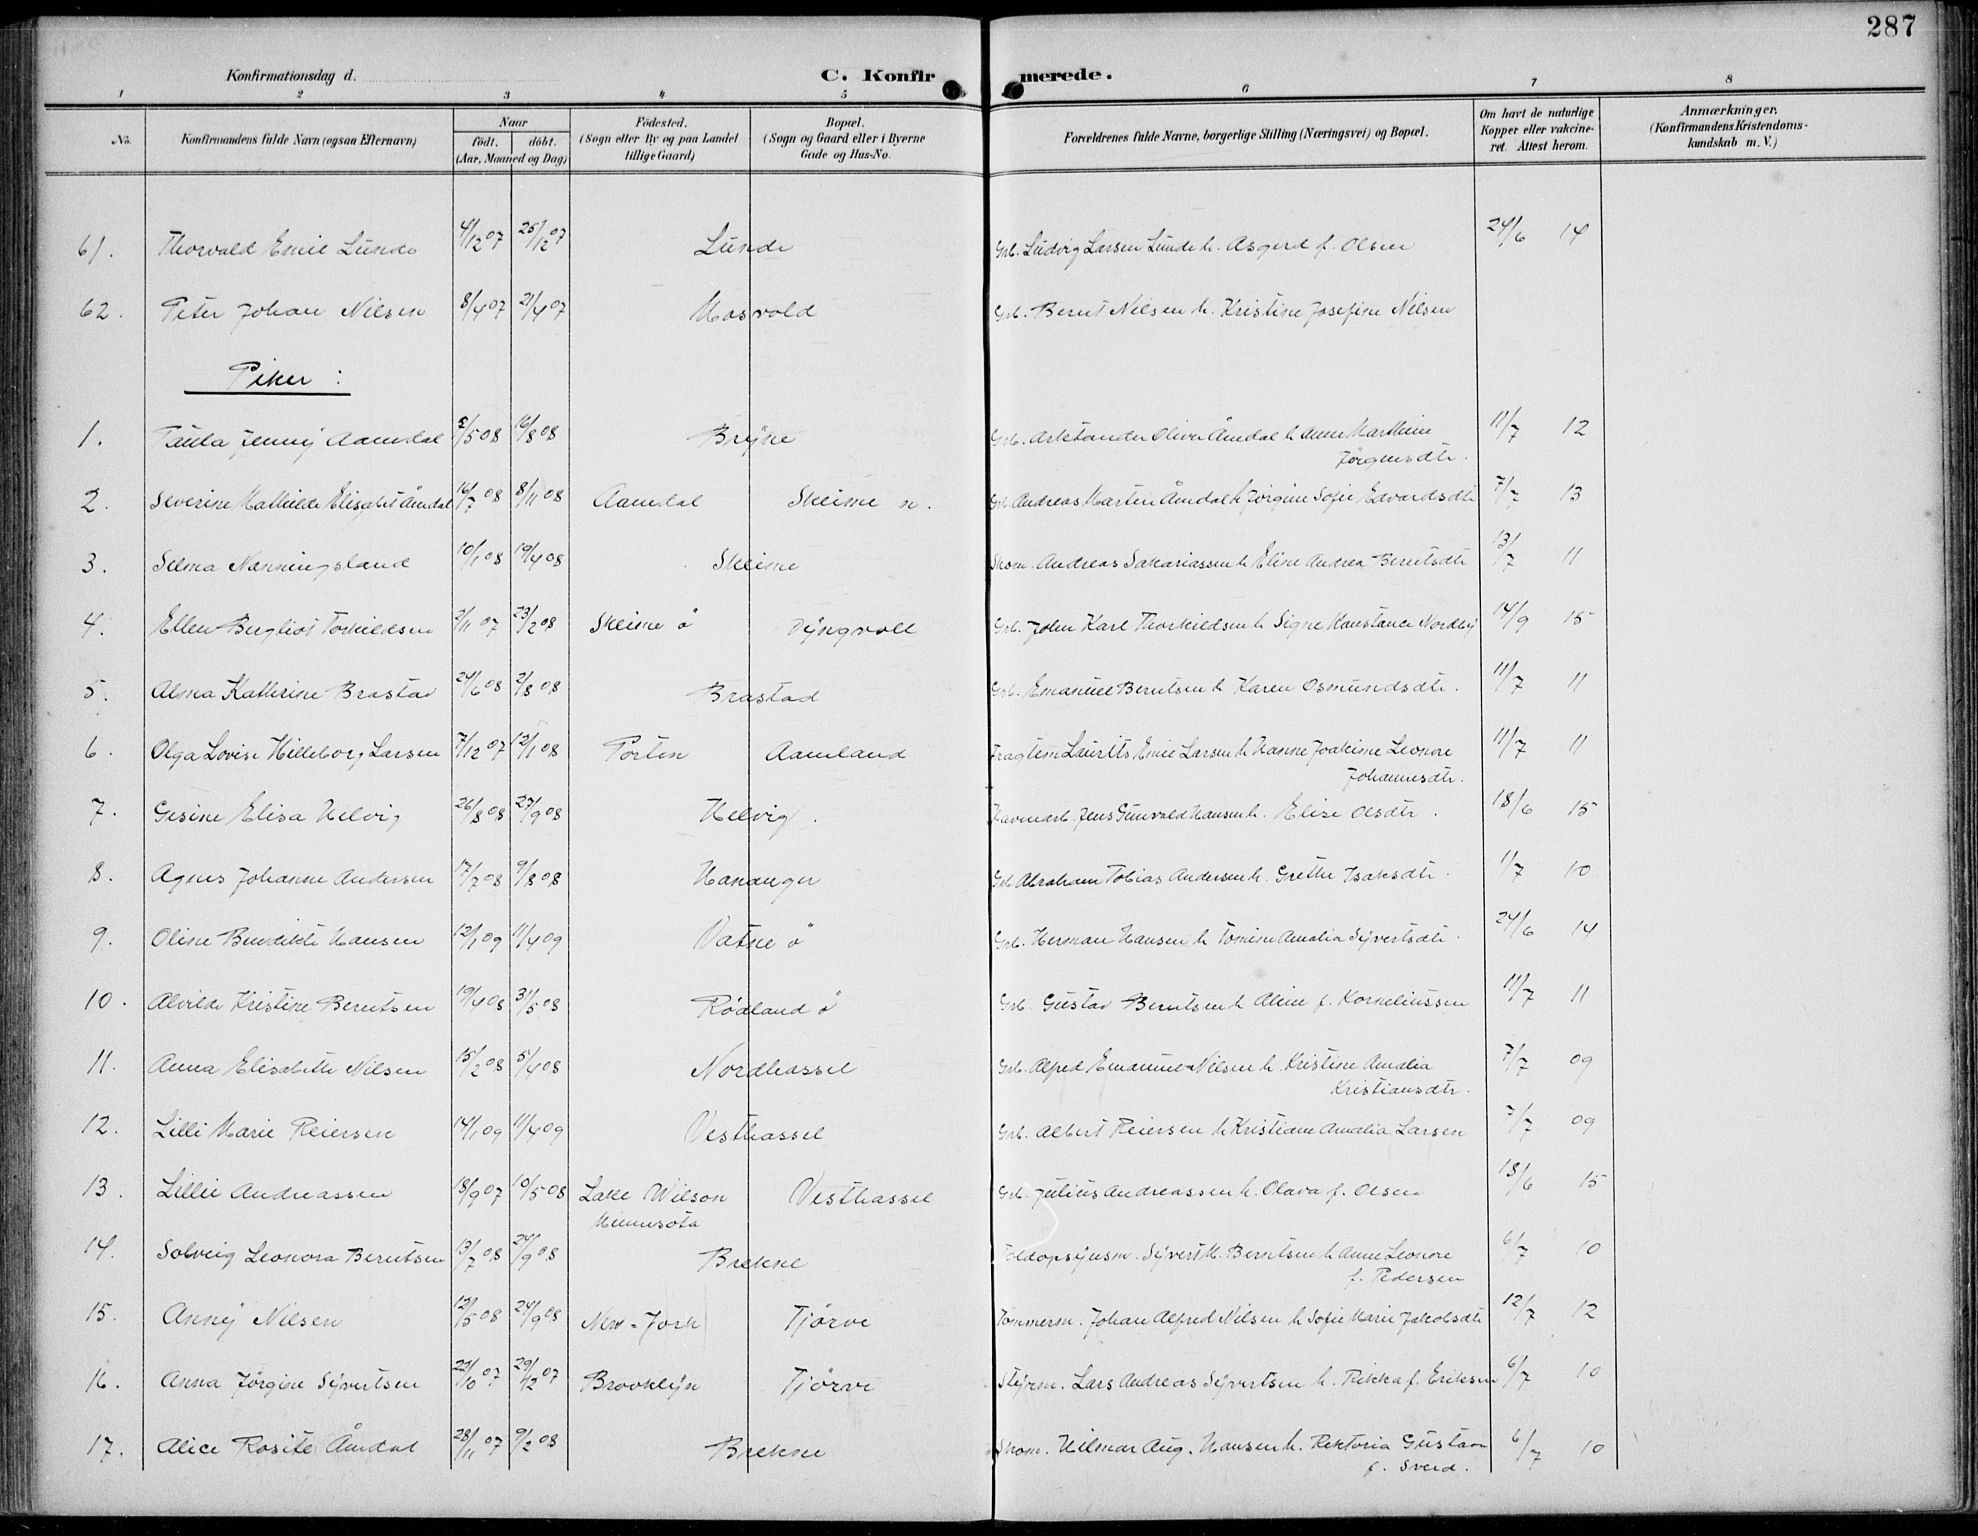 287
Konfirmationsdag d. C. Konfirmerede.
1 2 3 4 5 6 7 8
No. Konfirmandens fulde Navn (ogsaa Efternavn) Naar født. døbt. (Aar, Maaned og Dag) Fødested. (Sogn eller By og paa Landet tillige Gaard) Bopæl. (Sogn og Gaard eller i Byerne Gade og Hus-No. Forældrenes fulde Navne, borgerlige Stilling (Næringsvei) og Bopæl. Om havt de naturlige Kopper eller vakcineret. Attest herom. Anmærkninger. (Konfirmandens Kristendomskundskab m. V.)
61. Thorvald Emil Lunde 4/12 07 25/12 07 Lunde Grb. Ludvig Larsen Lunde h. Asgerd f. Olsen 24/6 14
62. Peter Johan Nilsen 8/4 07 21/4 07 Mosvold Grb. Bernt Nilsen h. Kristine Josefine Nilsen
Piker :
1. Paula Jenny Aamdal 2/5 08 16/8 08 Bryne Grb. Oliver Åmdal h Anne Marthine 11/7 12
Jörgensdtr.
2. Severine Mathilde Elisabet Åmdal 16/7 08 8/11 08 Aamdal Skeime n. Grb. Andreas Martin Åmdal h Jörgine Sofie Edvardsdtr 7/7 13
3. Selma Nenningsland 10/1 08 19/4 08 Skeime Skom. Andreas Sakariassen h Eline Andrea Berntsdtr 13/7 11
4. Ellen Bergliot Torkildsen 2/11 07 23/2 08 Skeime ö Dyngvoll Grb. John Karl Thorkildsen h Signe Konstance Nordby 14/9 15
5. Alma Kathrine Brastad 24/6 08 2/8 08 Brastad Grb. Emanuel Berntsen h Karen Osmundsdtr. 11/7 11
6. Olga Lovise Hilleborg Larsen 7/12 07 12/1 08 Porten Aamland Fragtem Laurits Emil Larsen h Hanne Joakime Leonore 11/7 11
Johannesdtr.
7. Gesine Elisa Helvig 26/8 08 27/9 08 Helvig. Havnarb. Jens Gunvald Hansen h. Elise Olsdtr. 18/6 15
8. Agnes Johanne Andersen 17/7 08 9/8 08 Hananger Grb Abraham Tobias Andersen h. Grethe Isaksdtr. 1/7 10
9. Oline Benedikte Hansen 12/1 09 11/4 09 Vatne ö Grb. Herman Hansen h Tomine Amalia Syvertsdtr. 24/6 14
10. Alvilde Kristine Berntsen 19/4 08 31/5 08 Rødland ö Grb. Gustav Berntsen h Aline f. Korneliussen 11/7 11
11. Anna Elisabeth Nilsen 15/2 08 5/4 08 Nordhassel Grb. Alfred Emanuel Nilsen h. Kristine Amalia 7/7 09
Kristiansdtr.
12. Lilli Marie Reiersen 14/1 09 11/4 09 Vesthassel Grb. Albert Reiersen h Kristiane Amalia Larsen 7/7 09
13. Lillie Andreassen 18/9 07 10/5 08 Lake Wilson Vesthassel Grb. Julius Andreassen h. Olava f. Olsen 18/6 15
Minnesota
14. Solveig Leonora Berntsen 13/7 08 24/9 08 Brekne Toldopsynsm. Syvert M. Berntsen h Anne Leonore 6/7 10
f. Pedersen
15. Anny Nilsen 12/5 08 24/9 08 New-York Tjörve Tömmerm. Johan Alfred Nilsen h Sofie Marie Jakobsdtr 12/7 12
16. Anna Jörgine Syvertsen 22/10 07 29/12 07 Brooklyn Tjörve Styrm. Lars Andreas Syvertsen h. Rikka f. Eriksen 6/7 10
17. Alice Rosite Åmdal 28/11 07 9/2 08 Brekne Skom. Hilmar Aug. Hansen h. Rektoria Gustava 6/7 10
f. Sverd.